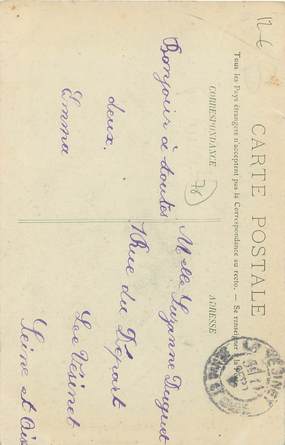 CARTE POSTALE
Tous les Pays étrangers n'acceptent pas la Correspondance au recto. — Se renseigner
CORRESPONDANCE
ADRESSE
12 €
76
Bonjour à toutes
deux.
Emma
Melle Suzanne Duguet
Rue du Départ
Lee Vésinet
Seine et Ois